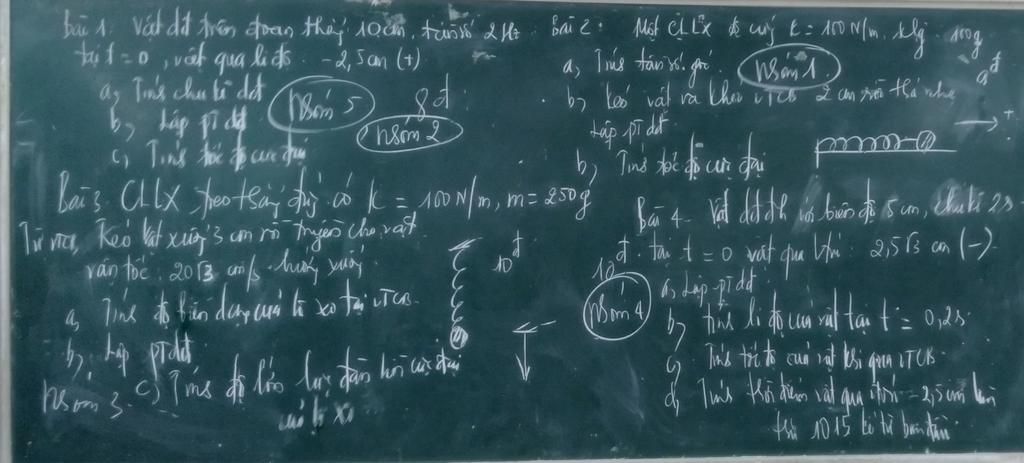 Bài 1: Vật dđ trên đoạn thẳng 10cm, tần số 2Hz
tại t = 0, vật qua li độ -2,5cm (+)
a, Tính chu kì dđ
b, Lập pt dđ
c, Tính tốc độ cực đại
Nhóm 5
8đ
Nhóm 2
Bài 2: Một CLLX độ cứng k = 100N/m, 100g
a, Tính tần số góc
Nhóm 1
9đ
b, Kéo vật ra khỏi VTCB 2cm rồi thả nhẹ
Lập pt dđ
b, Tính tốc độ cực đại
+
Bài 3 CLLX treo thẳng đứng có k = 100N/m, m = 250g
Từ VTCB, kéo vật xuống 3cm rồi truyền cho vật
vận tốc 20√3 cm/s hướng xuống
a, Tính độ biến dạng của lò xo tại VTCB
b, Lập pt dđ
c, Tính độ lớn lực đàn hồi cực đại
của lò xo
Nhóm 3
10đ
Bài 4 Vật dđđh với biên độ 5cm, chu kì 2s
tại t = 0 vật qua 2,5√3 cm (-)
10đ
Nhóm 4
a, Lập pt dđ
b, Tính li độ của vật tại t = 0,2s
c, Tính tốc độ của vật khi qua VTCB
d, Tính thời điểm vật qua -2,5cm lần
thứ 1015 kể từ ban đầu